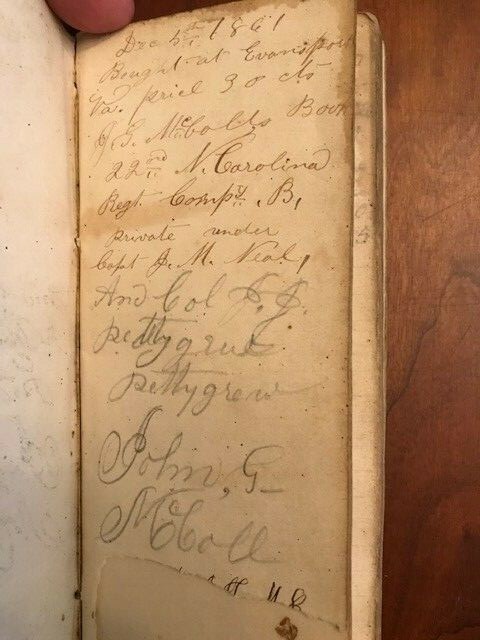 Dec 5th 1861
Bought at Evansport
Va. price 30 cts
J. G. McColls Book
22nd N. Carolina
Regt Compy. B,
private under
Capt J. M. Neal,
And Col J. J.
pettygrue
pettygrew
John, G-
McColl